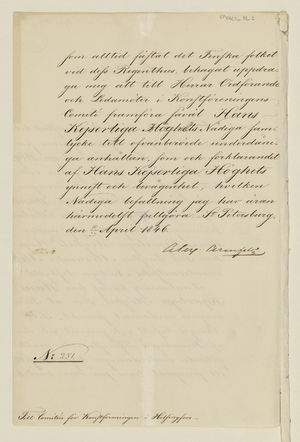 som alltid fästat det Finska folket
vid dess Regenthus, behagat uppdra-
ga mig att till Herrar Ordförande
och Ledamöter i Konstföreningens
Comité framföra såväl Hans
Kejserliga Höghets Nådiga sam-
tycke till ofvanberörde underdåni-
ga anhållan, som och förklarandet
af Hans Kejserliga Höghets
ynnest och bevågenhet, hvilken
Nådiga befallning jag har äran
härmedelst fullgöra. St Petersburg,
den April 1846.
Alex Armfelt
No 251
Till Comitén för Konstföreningen i Helsingfors